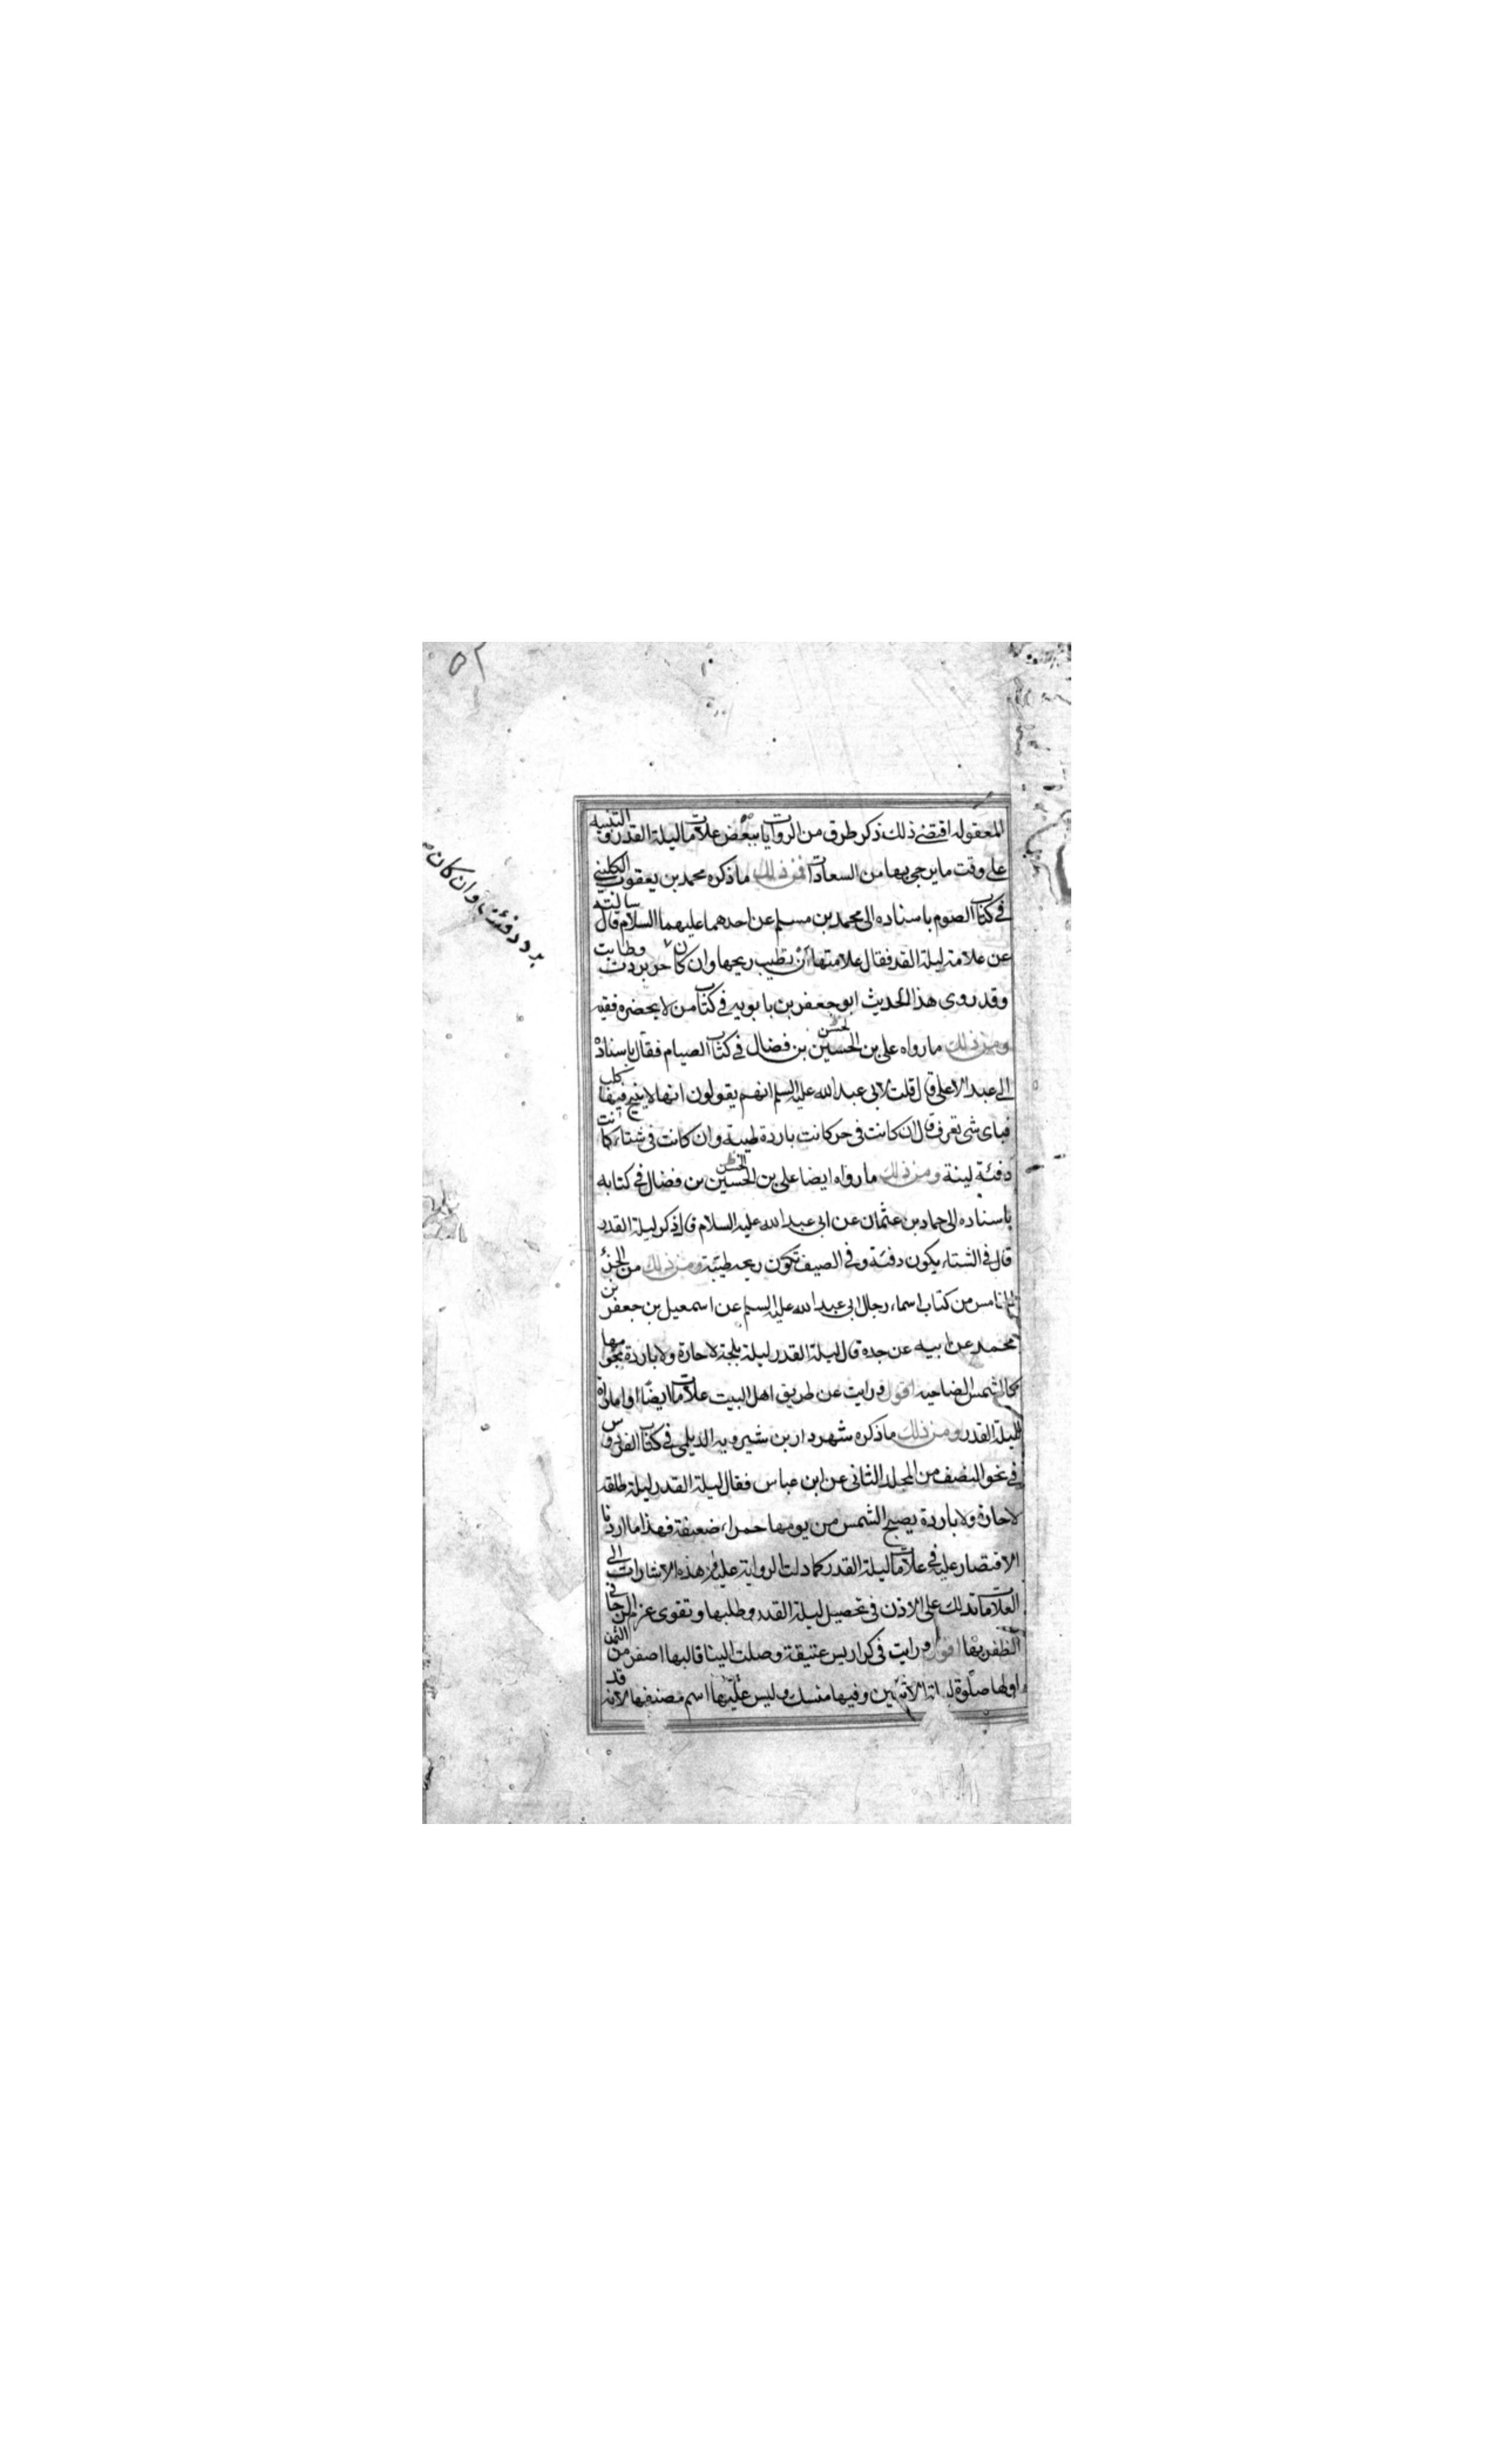 المعقوله اقتضى ذلك ذكر طرق من الروايات ببعض علامات ليلة القدر والتنبيه
على وقت ما يرجى بها من السعادات فمن ذلك ما ذكره محمد بن يعقوب الكليني
في كتاب الصوم باسناده الى محمد بن مسلم عن احدهما عليهما السلام قال سالته
عن علامة ليلة القدر فقال علامتها ان تطيب ريحها وان كان حر بردت وطابت
برد دفئت وان كان
وقد روى هذا الحديث ابو جعفر بن بابويه في كتاب من لا يحضره فقيه
ومن ذلك ما رواه على بن الحسين بن فضال في كتاب الصيام فقال باسناده
الحسن
الى عبد الاعلى قال قلت لابى عبد الله عليه السلم انهم يقولون انها لا ينبح فيها كلب
فباى شى تعرف قال ان كانت في حر كانت باردة طيبة وان كانت في شتاء كانت
دفئة لينة ومن ذلك ما رواه ايضا على بن الحسين بن فضال في كتابه
الحسن
باسناده الى حماد بن عثمان عن ابى عبد الله عليه السلام قال ذكر ليلة القدر
قال في الشتاء يكون دفئة وفي الصيف تكون ريحه طيبة ومن ذلك من الجزء
الخامس من كتاب اسماء رجال ابى عبد الله عليه السلم عن اسمعيل بن جعفر بن
محمد عن ابيه عن جده قال ليلة القدر ليلة بلجة لا حارة ولا باردة نجومها
كالشمس الضاحيه اقول ورايت عن طريق اهل البيت علامات ايضا او اماراة
لليلة القدر ومن ذلك ما ذكره شهردار بن شيرويه الديلمى في كتاب الفردوس
في نحو النصف من المجلد الثانى عن ابن عباس فقال ليلة القدر ليلة طلقة
لا حارة ولا باردة يصبح الشمس من يومها حمراء ضعيفة فهذا ما اردنا
الاقتصار عليه في علامات ليلة القدر كما دلت الرواية عليه وهذه الاشارات الى
العلامات تدلك على الاذن في تحصيل ليلة القدر وطلبها وتقوى عزائم الرجا في
الظفر بها اقول ورايت في كراريس عتيقة وصلت الينا قالبها اصغر من الثمن
اولها صلوة ليلة الاثنين وفيها منسك وليس عليها اسم مصنفها لانه قد